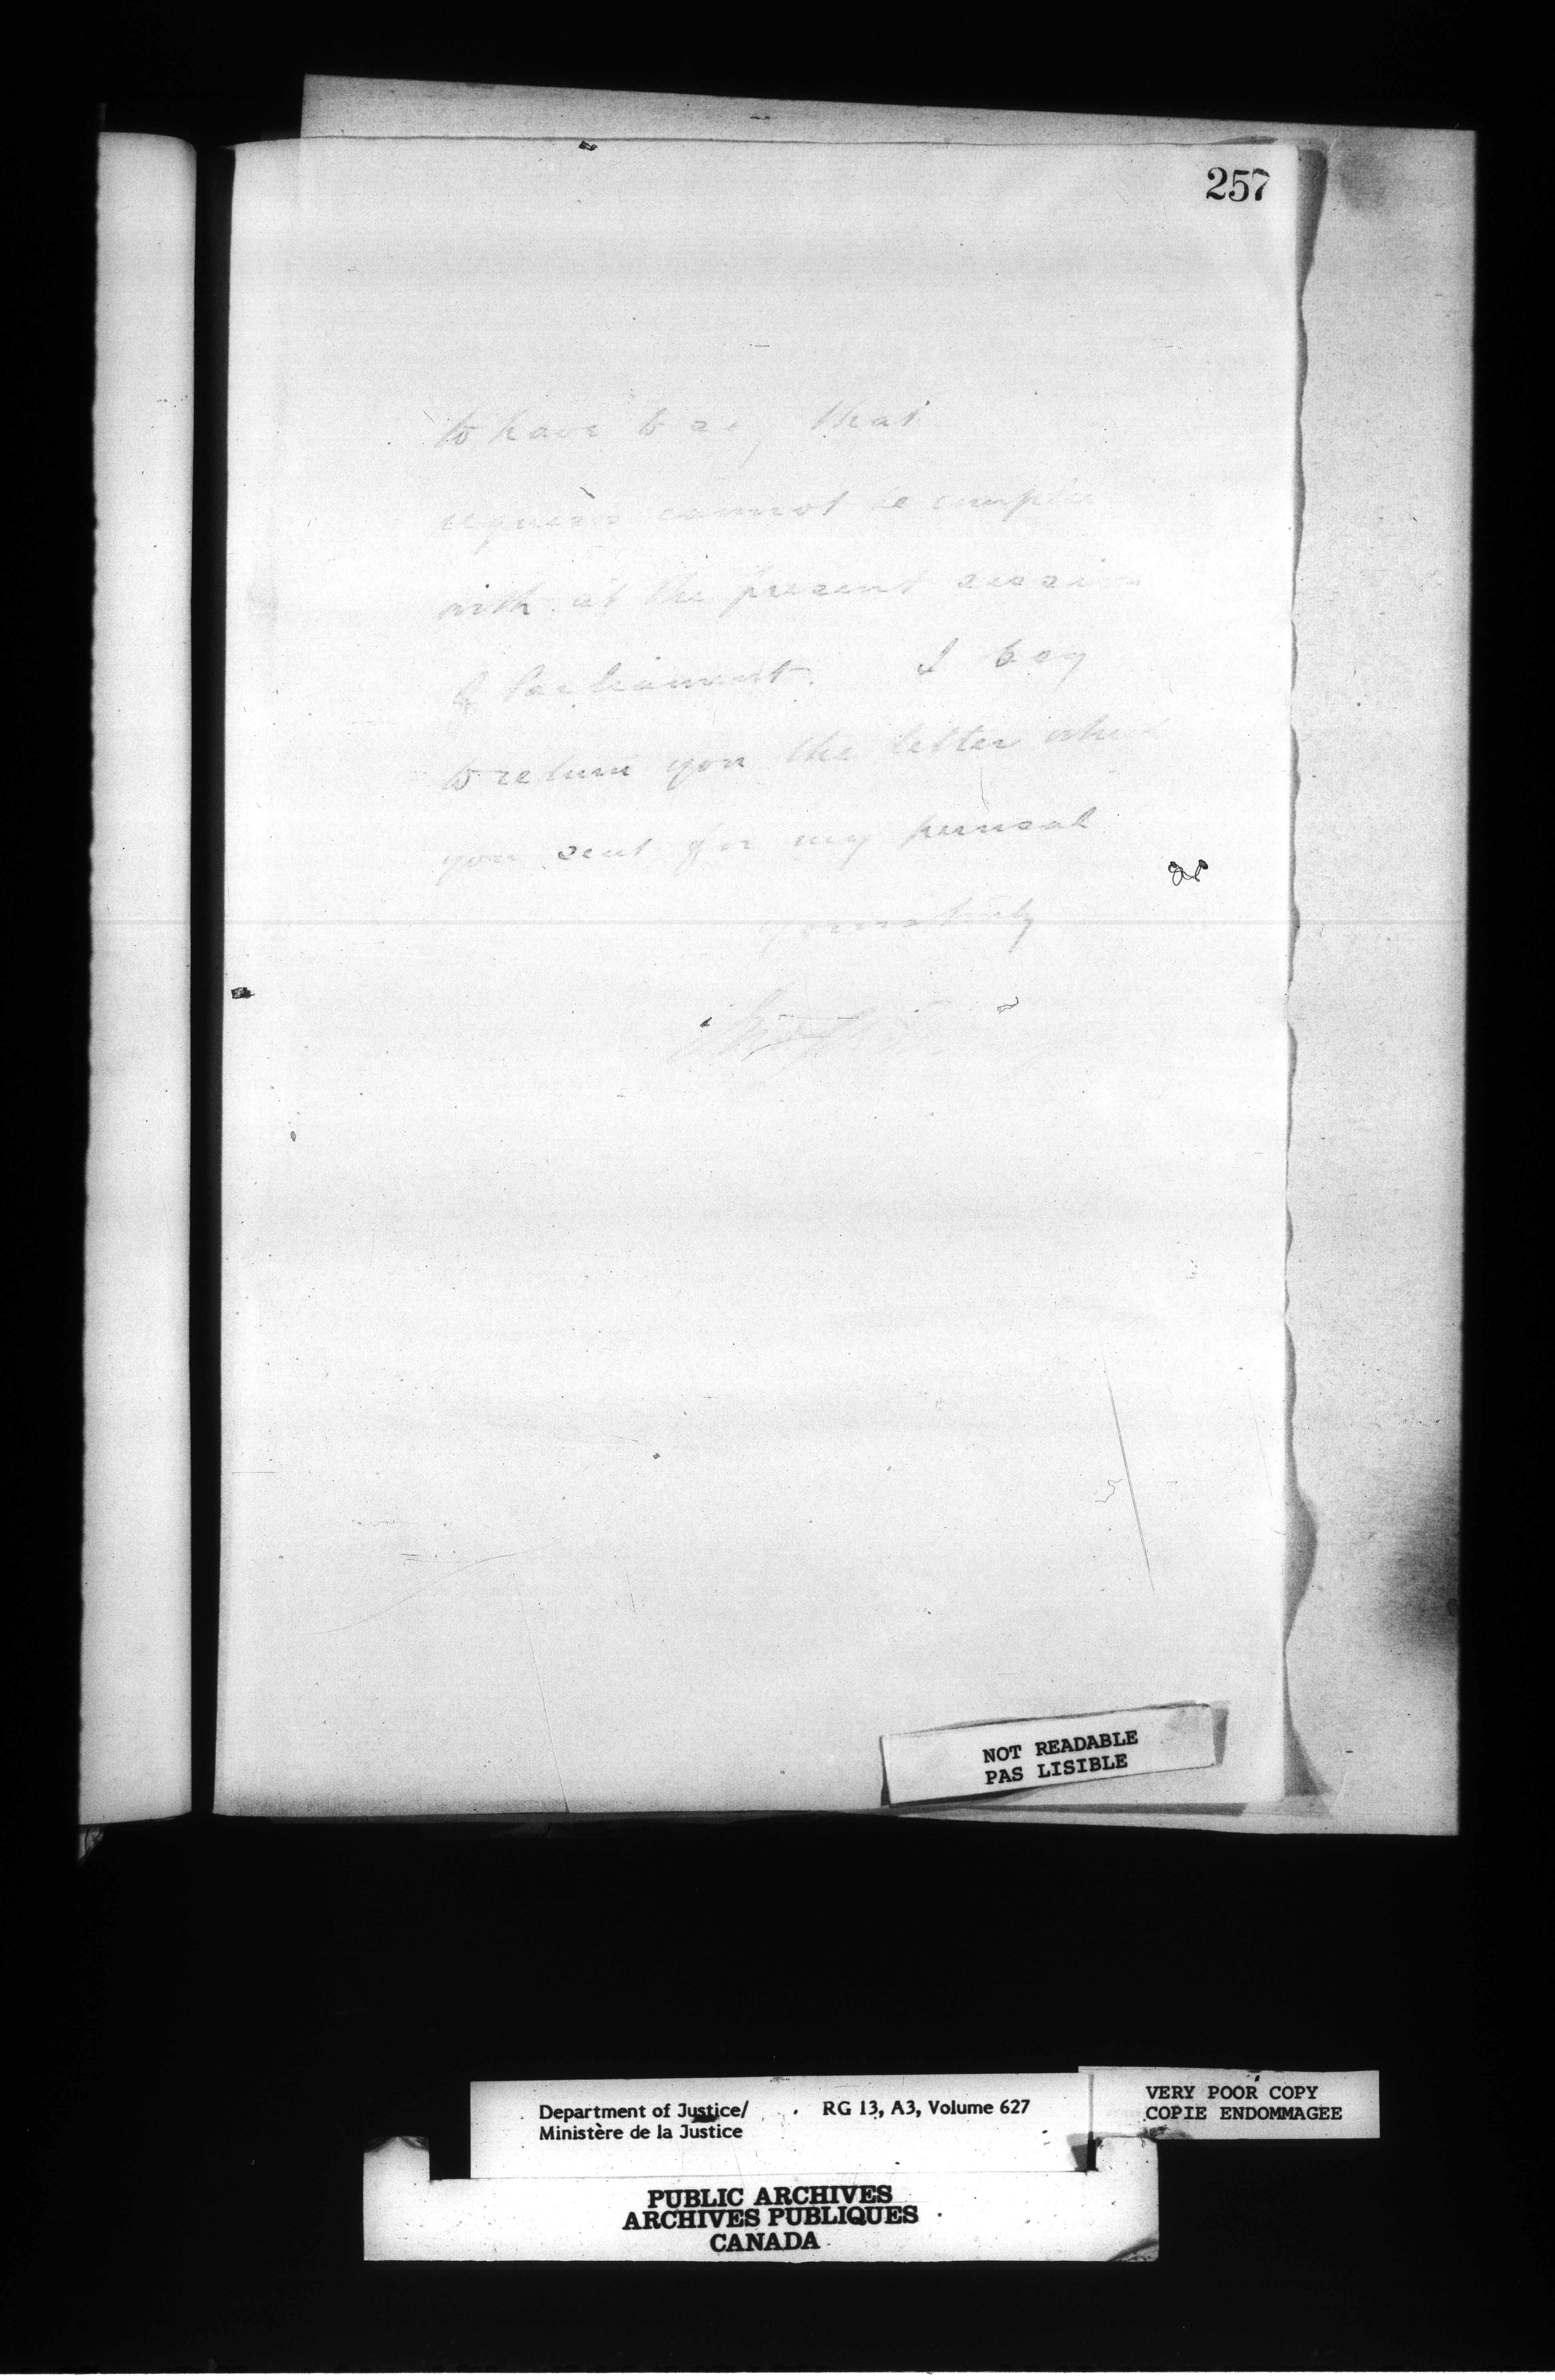 257
to have to say that
request cannot be complied
with at the present session
of Parliament. I beg
to return you the letter which
you sent for my perusal
yours truly
NOT READABLE
PAS LISIBLE
Department of Justice/ RG 13, A3, Volume 627
Ministère de la Justice
VERY POOR COPY
COPIE ENDOMMAGEE
PUBLIC ARCHIVES
ARCHIVES PUBLIQUES
CANADA